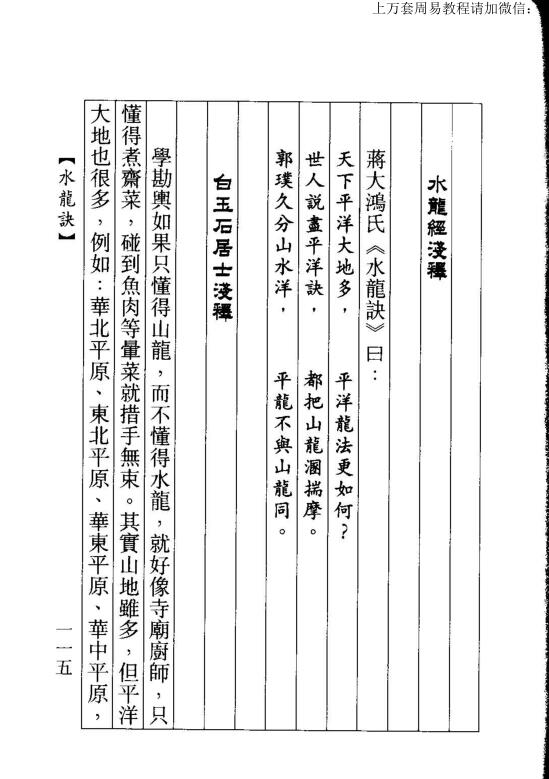 上万套周易教程请加微信：
水龍經淺釋
蔣大鴻氏《水龍訣》曰：
天下平洋大地多，　平洋龍法更如何？
世人說盡平洋訣，　都把山龍溷揣摩。
郭璞久分山水洋，　平龍不與山龍同。
白玉石居士淺釋
學勘輿如果只懂得山龍，而不懂得水龍，就好像寺廟廚師，只
懂得煮齋菜，碰到魚肉等暈菜就措手無束。其實山地雖多，但平洋
大地也很多，例如：華北平原、東北平原、華東平原、華中平原，
【水龍訣】
一一五